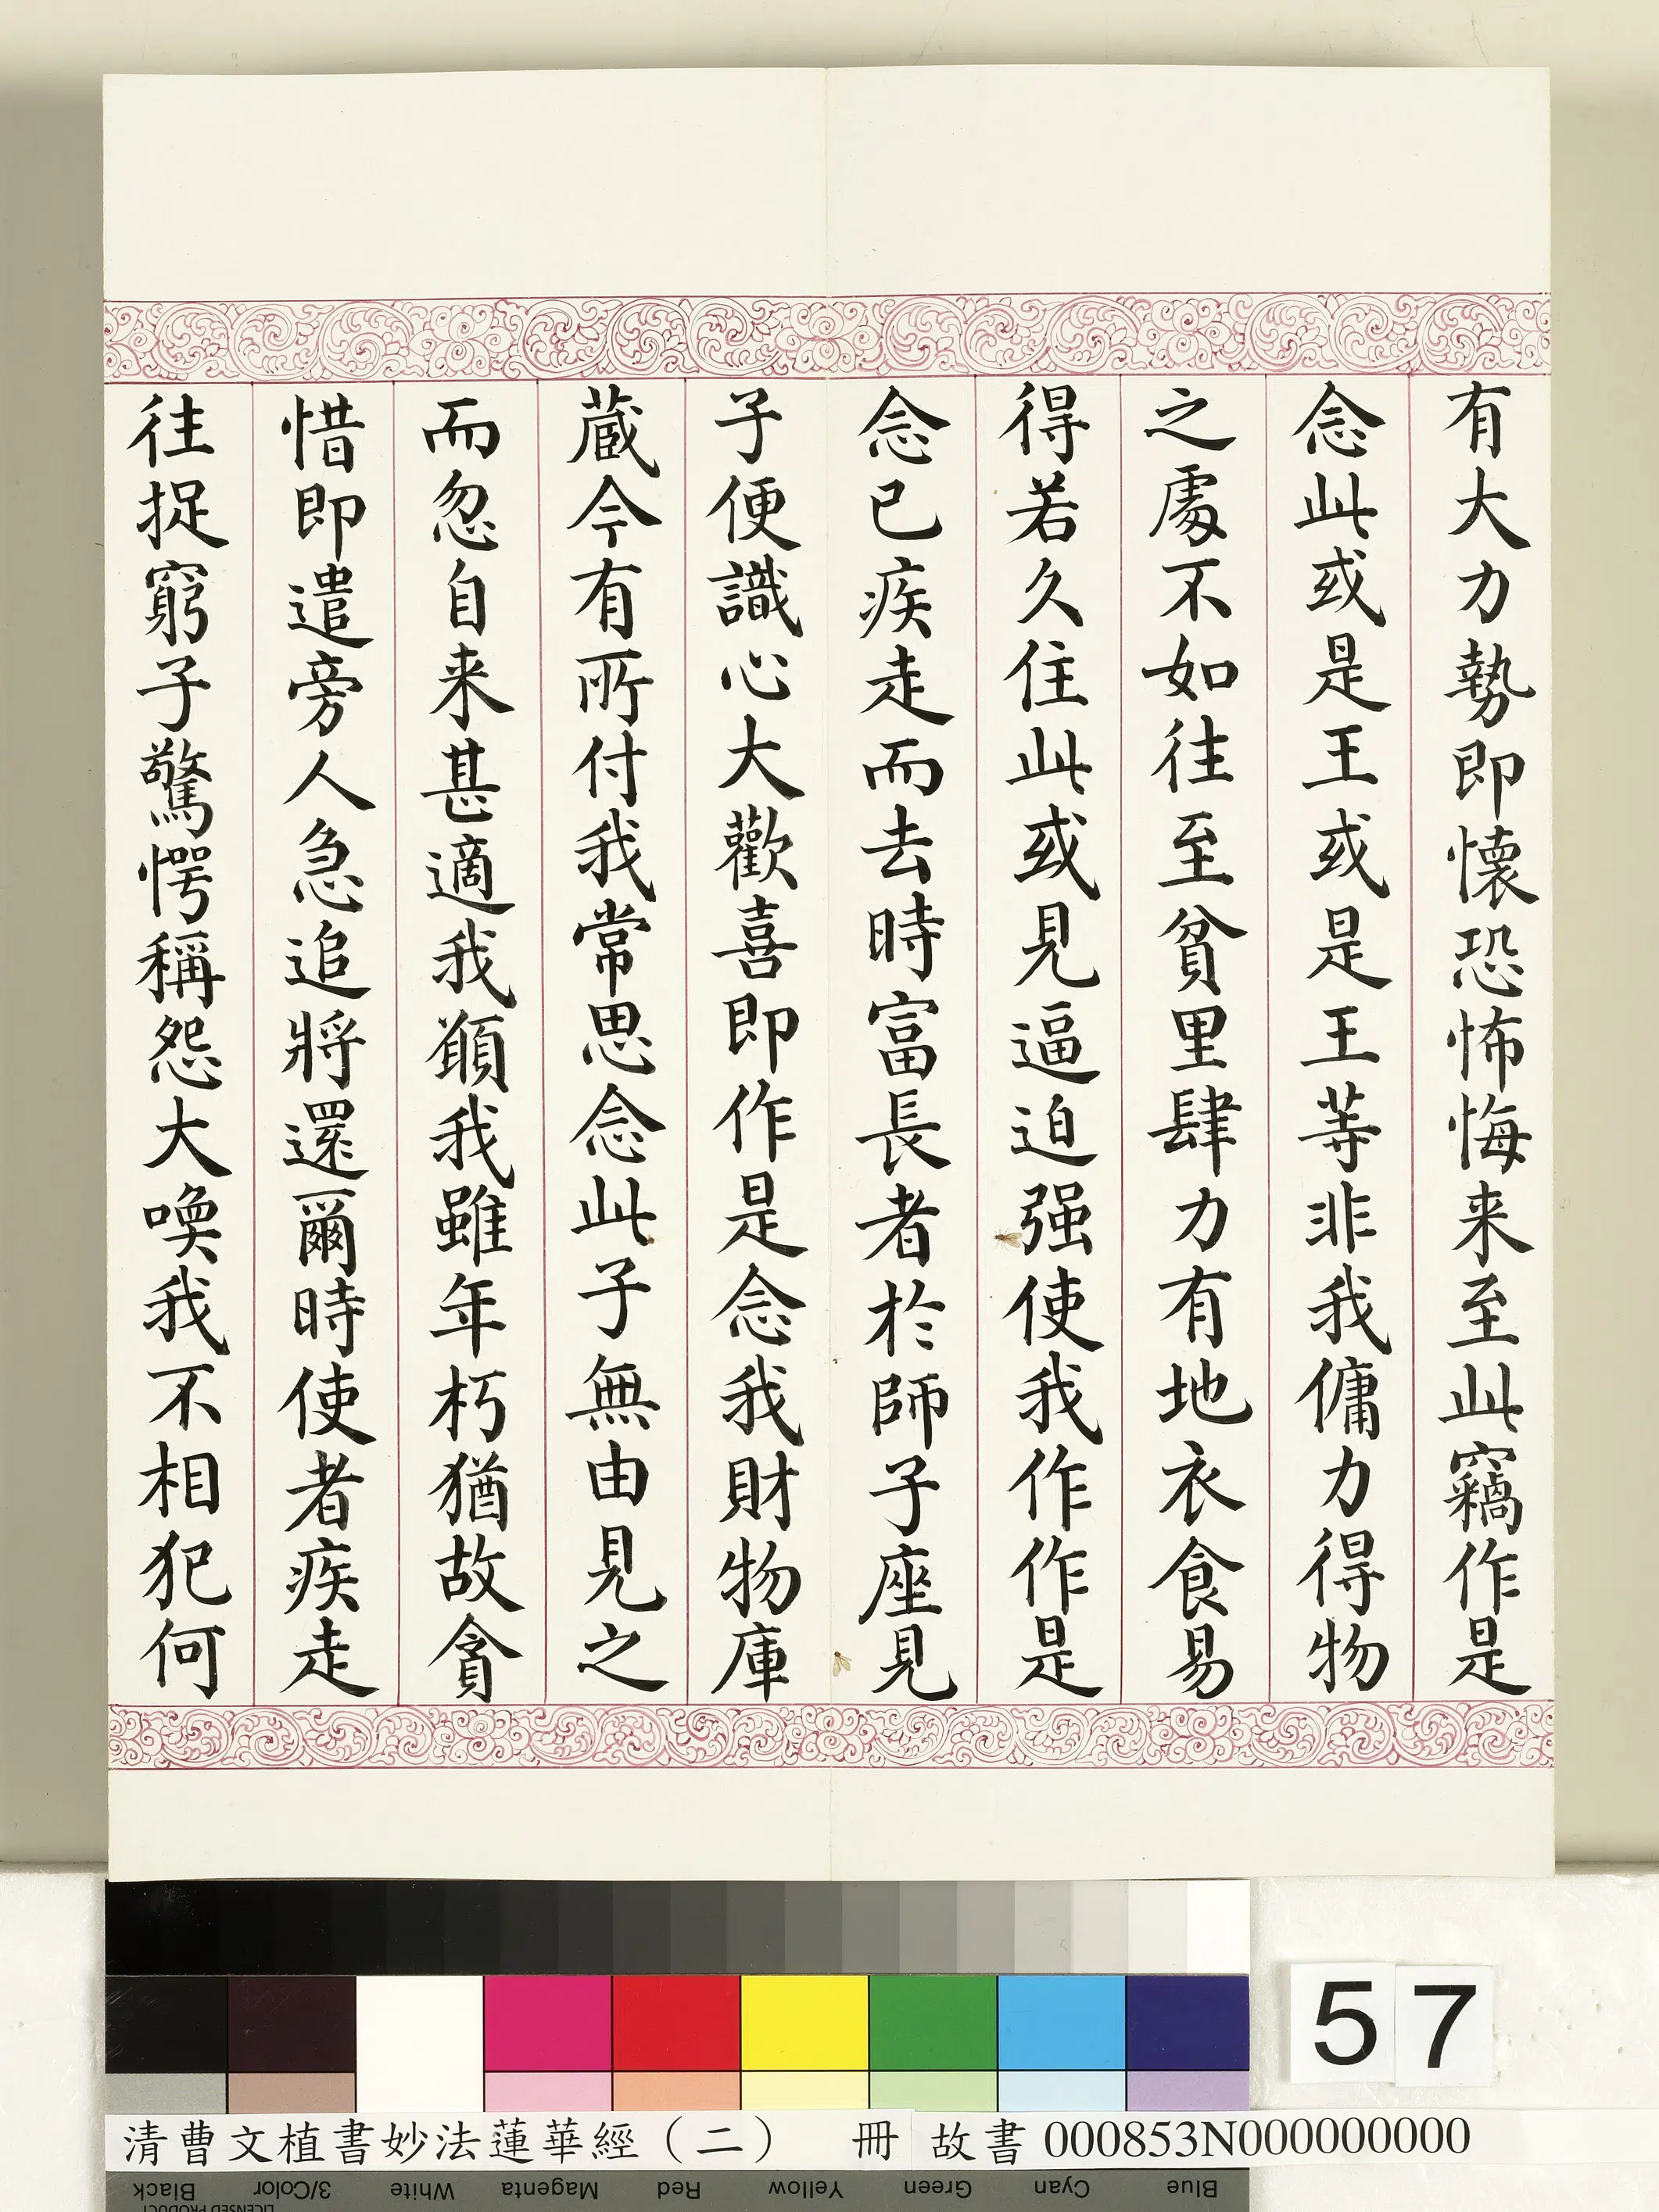 有大力勢即懷恐怖悔来至此竊作是
念此或是王或是王等非我傭力得物
之處不如往至貧里肆力有地衣食易
得若久住此或見逼迫强使我作作是
念已疾走而去時富長者於師子座見
子便識心大歡喜即作是念我財物庫
蔵今有所付我常思念此子無由見之
而忽自来甚適我願我雖年朽猶故貪
惜即遣旁人急追將還爾時使者疾走
往捉窮子驚愕稱怨大喚我不相犯何
57
清曹文植書妙法蓮華經（二） 冊 故書 000853N000000000
Black 3/Color White Magenta Red Yellow Green Cyan Blue
LICENSED PRODUCT